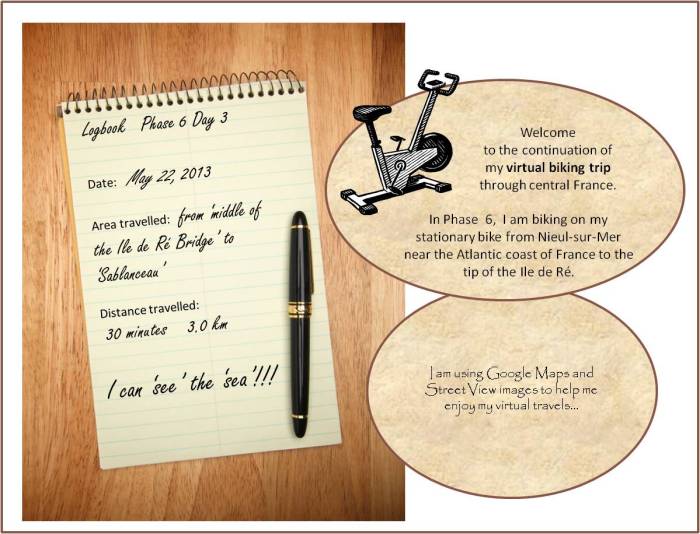 Logbook Phase 6 Day 3
Date: May 22, 2013
Area travelled: from 'middle of
the Ile de Ré Bridge' to
'Sablanceau'
Distance travelled:
30 minutes 3.0 km
I can 'see' the 'sea'!!!
Welcome
to the continuation of
my virtual biking trip
through central France.
In Phase 6, I am biking on my
stationary bike from Nieul-sur-Mer
near the Atlantic coast of France to the
tip of the Ile de Ré.
I am using Google Maps and
Street View images to help me
enjoy my virtual travels...